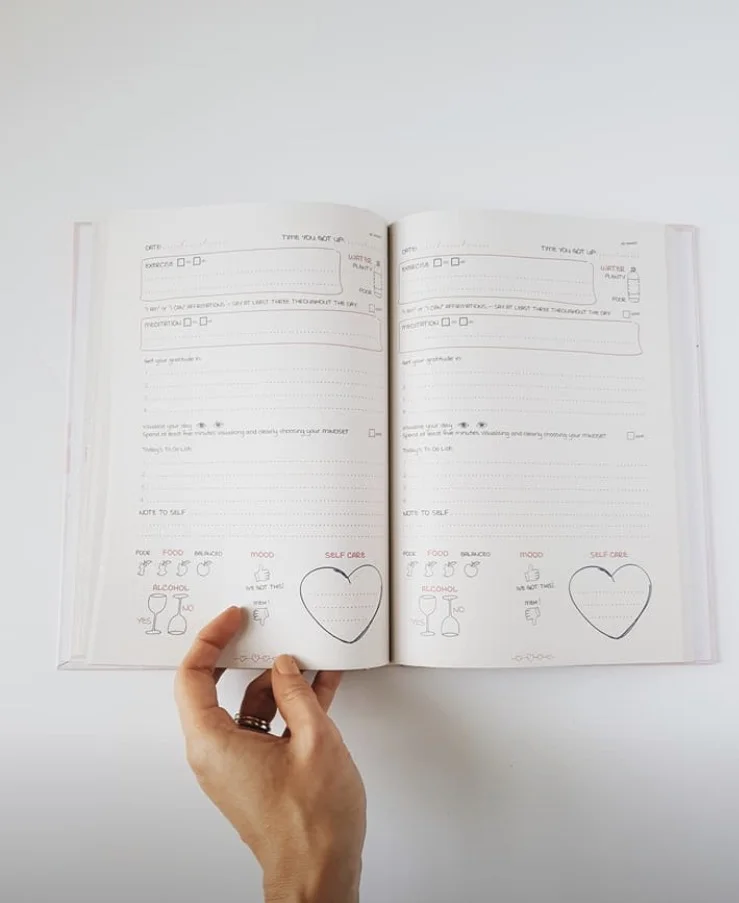 DATE:
TIME YOU GOT UP:
EXERCISE
WATER
PLENTY
POOR
"I AM" or "I CAN" AFFIRMATIONS - SAY AT LEAST THREE THROUGHOUT THE DAY
MEDITATION
Get your gratitude in:
Visualise your day
Spend at least five minutes visualising and clearly choosing your mindset
Today's To Do List:
NOTE TO SELF
POOR FOOD BALANCED
MOOD
SELF CARE
I'VE GOT THIS!
ALCOHOL
YES
NO
MEH!
DATE:
TIME YOU GOT UP:
EXERCISE
WATER
PLENTY
POOR
"I AM" or "I CAN" AFFIRMATIONS - SAY AT LEAST THREE THROUGHOUT THE DAY
MEDITATION
Get your gratitude in:
Visualise your day
Spend at least five minutes visualising and clearly choosing your mindset
Today's To Do List:
NOTE TO SELF
POOR FOOD BALANCED
MOOD
SELF CARE
I'VE GOT THIS!
ALCOHOL
YES
NO
MEH!